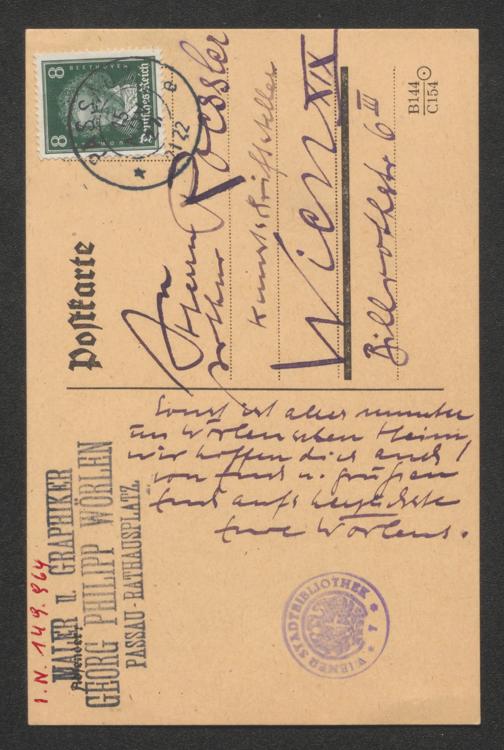 Postkarte
8 BEETHOVEN 8
Deutsches Reich
An
Herrn
Arthur Roessler
Kunstschriftsteller
Wien XIX
Billrothstr 6 III
B144
C154
Sonst ist alles munter
im Wörlenschen Heim,
wir hoffen dies auch
von Euch u. grüßen
Euch aufs herzlichste
Eure Wörlens.
I.N. 149.964
Absender:
MALER u. GRAPHIKER
GEORG PHILIPP WÖRLEN
PASSAU-RATHAUSPLATZ
WIENER STADTBIBLIOTHEK